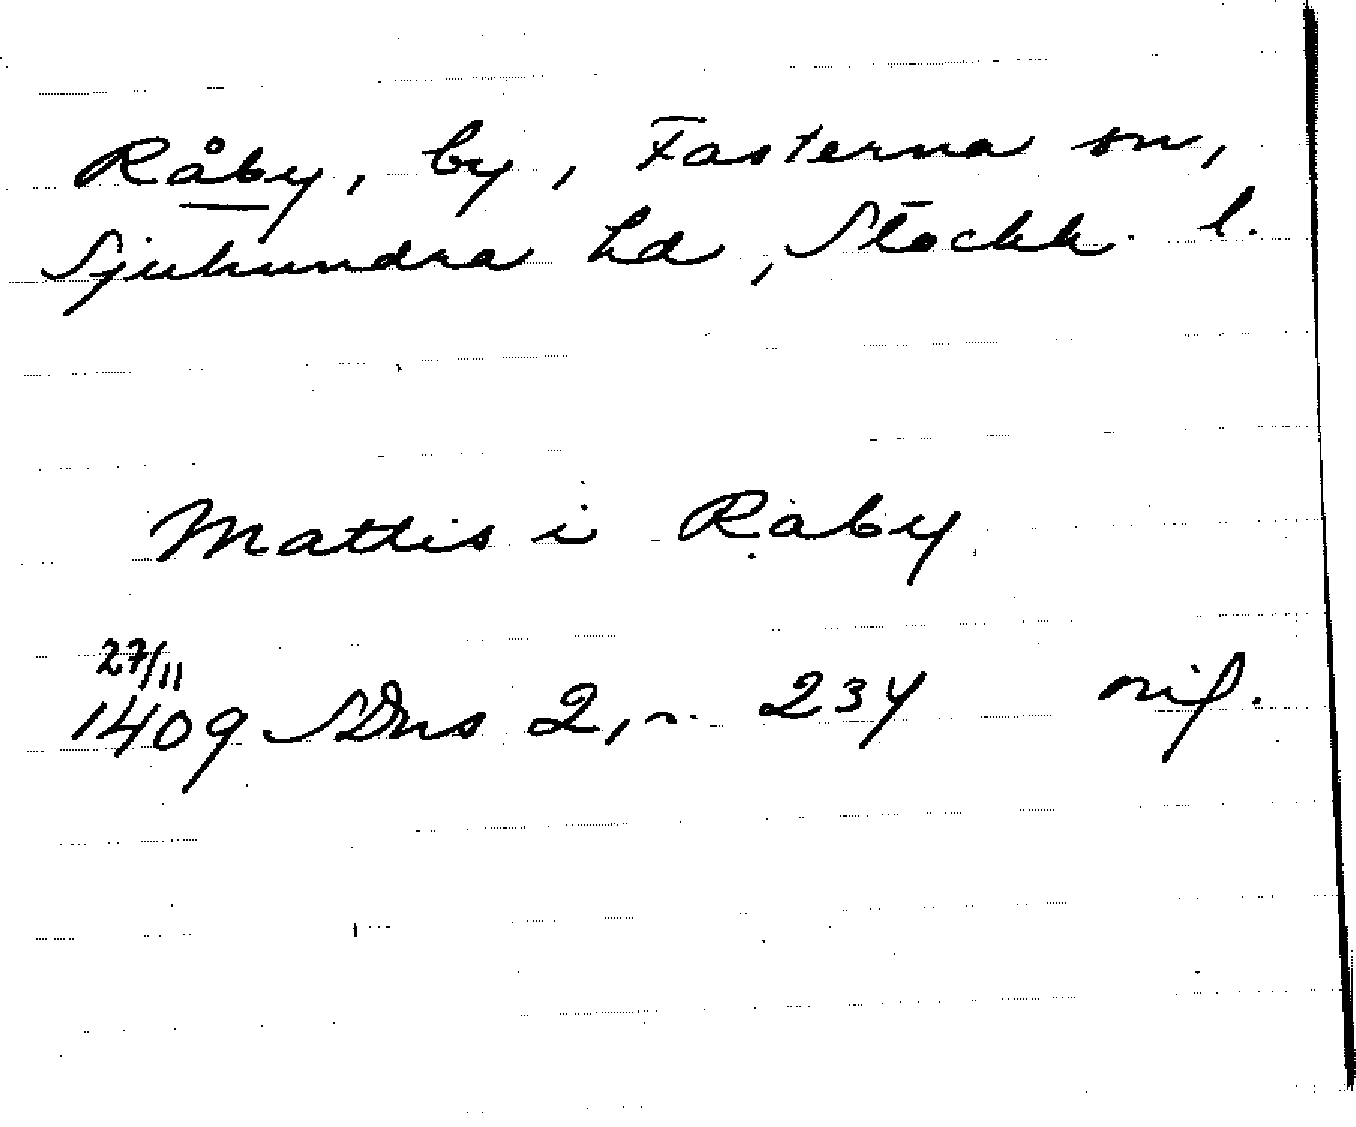 Råby, by, Fasterna sn,
Sjuhundra hd, Stockh. l.
Mattis i Raby
27/11
1409 SDns 2, s. 234 orig.